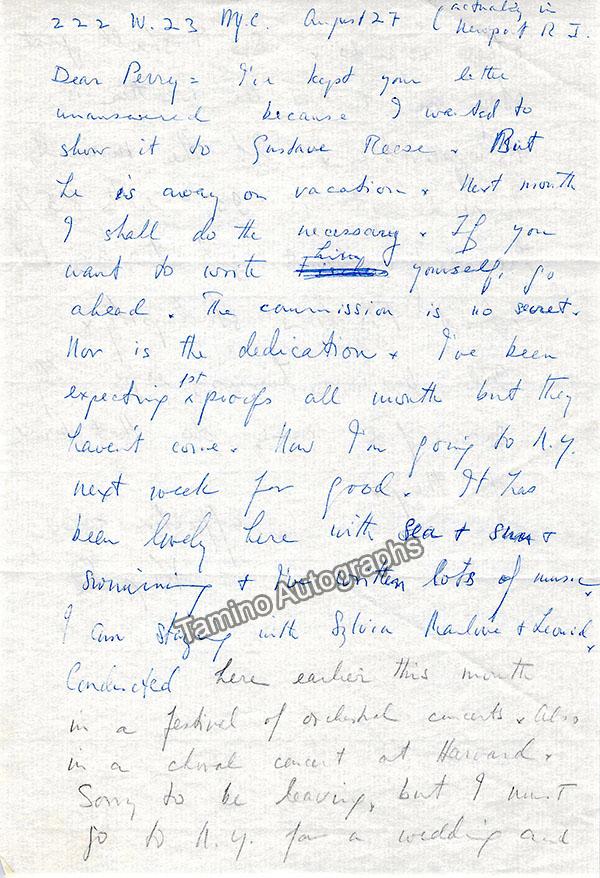 222 W. 23 N.Y.C. August 27 (actually in
Newport R I.
Dear Perry = I've kept your letter
unanswered because I wanted to
show it to Gustave Reese. But
he is away on vacation. Next month
I shall do the necessary. If you
want to write him yourself, go
ahead. The commission is no secret.
Nor is the dedication. I've been
expecting 1st proofs all month but they
haven't come. Now I'm going to N.Y.
next week for good. It has
been lovely here with sea + sun +
swimming + I've written lots of music.
I am staying with Sylvia Marlowe + Leonid.
Conducted here earlier this month
in a festival of orchestral concerts. Also
in a choral concert at Harvard.
Sorry to be leaving, but I must
go to N.Y. for a wedding and
Tamino Autographs